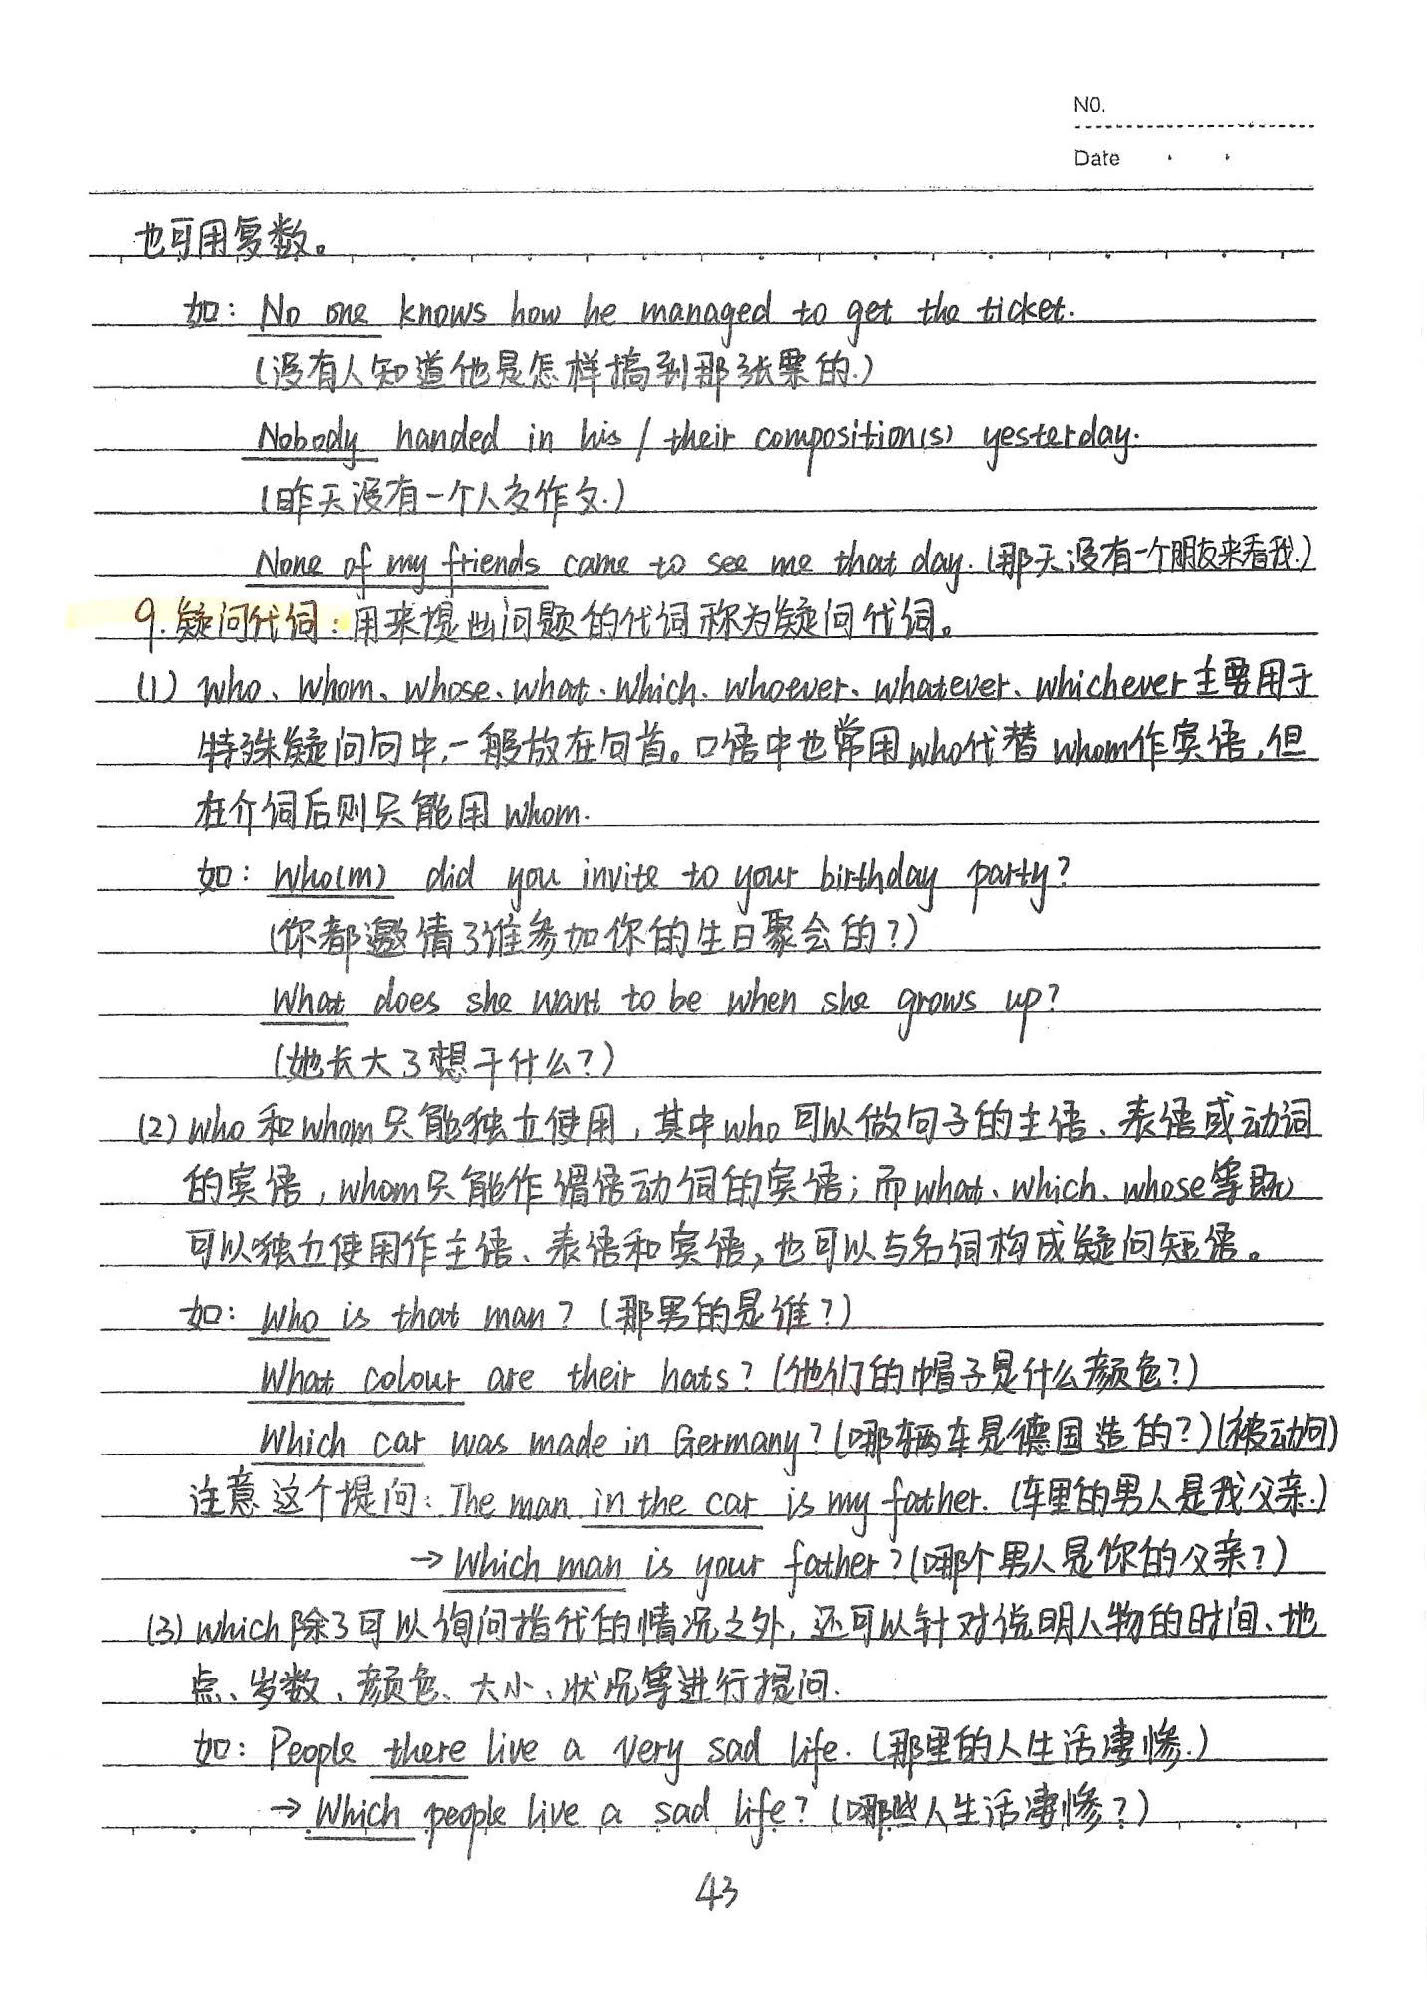 NO.
Date
也可用复数。
如: No one knows how he managed to get the ticket.
(没有人知道他是怎样搞到那张票的.)
Nobody handed in his / their composition(s) yesterday.
(昨天没有一个人交作文.)
None of my friends came to see me that day. (那天没有一个朋友来看我.)
9. 疑问代词: 用来提出问题的代词称为疑问代词。
(1) who、whom、whose、what、which、whoever、whatever、whichever主要用于
特殊疑问句中,一般放在句首。口语中也常用who代替whom作宾语,但
在介词后则只能用whom.
如: Who(m) did you invite to your birthday party?
(你都邀请了谁参加你的生日聚会的?)
What does she want to be when she grows up?
(她长大了想干什么?)
(2) who和whom只能独立使用,其中who可以做句子的主语、表语或动词
的宾语,whom只能作谓语动词的宾语;而what、which、whose等既
可以独立使用作主语、表语和宾语,也可以与名词构成疑问短语。
如: Who is that man? (那男的是谁?)
What colour are their hats? (他们的帽子是什么颜色?)
Which car was made in Germany? (哪辆车是德国造的?)(被动句)
注意这个提问: The man in the car is my father. (车里的男人是我父亲.)
→ Which man is your father? (哪个男人是你的父亲?)
(3) which除了可以询问指代的情况之外,还可以针对说明人物的时间、地
点、岁数、颜色、大小、状况等进行提问.
如: People there live a very sad life. (那里的人生活凄惨.)
→ Which people live a sad life? (哪些人生活凄惨?)
43